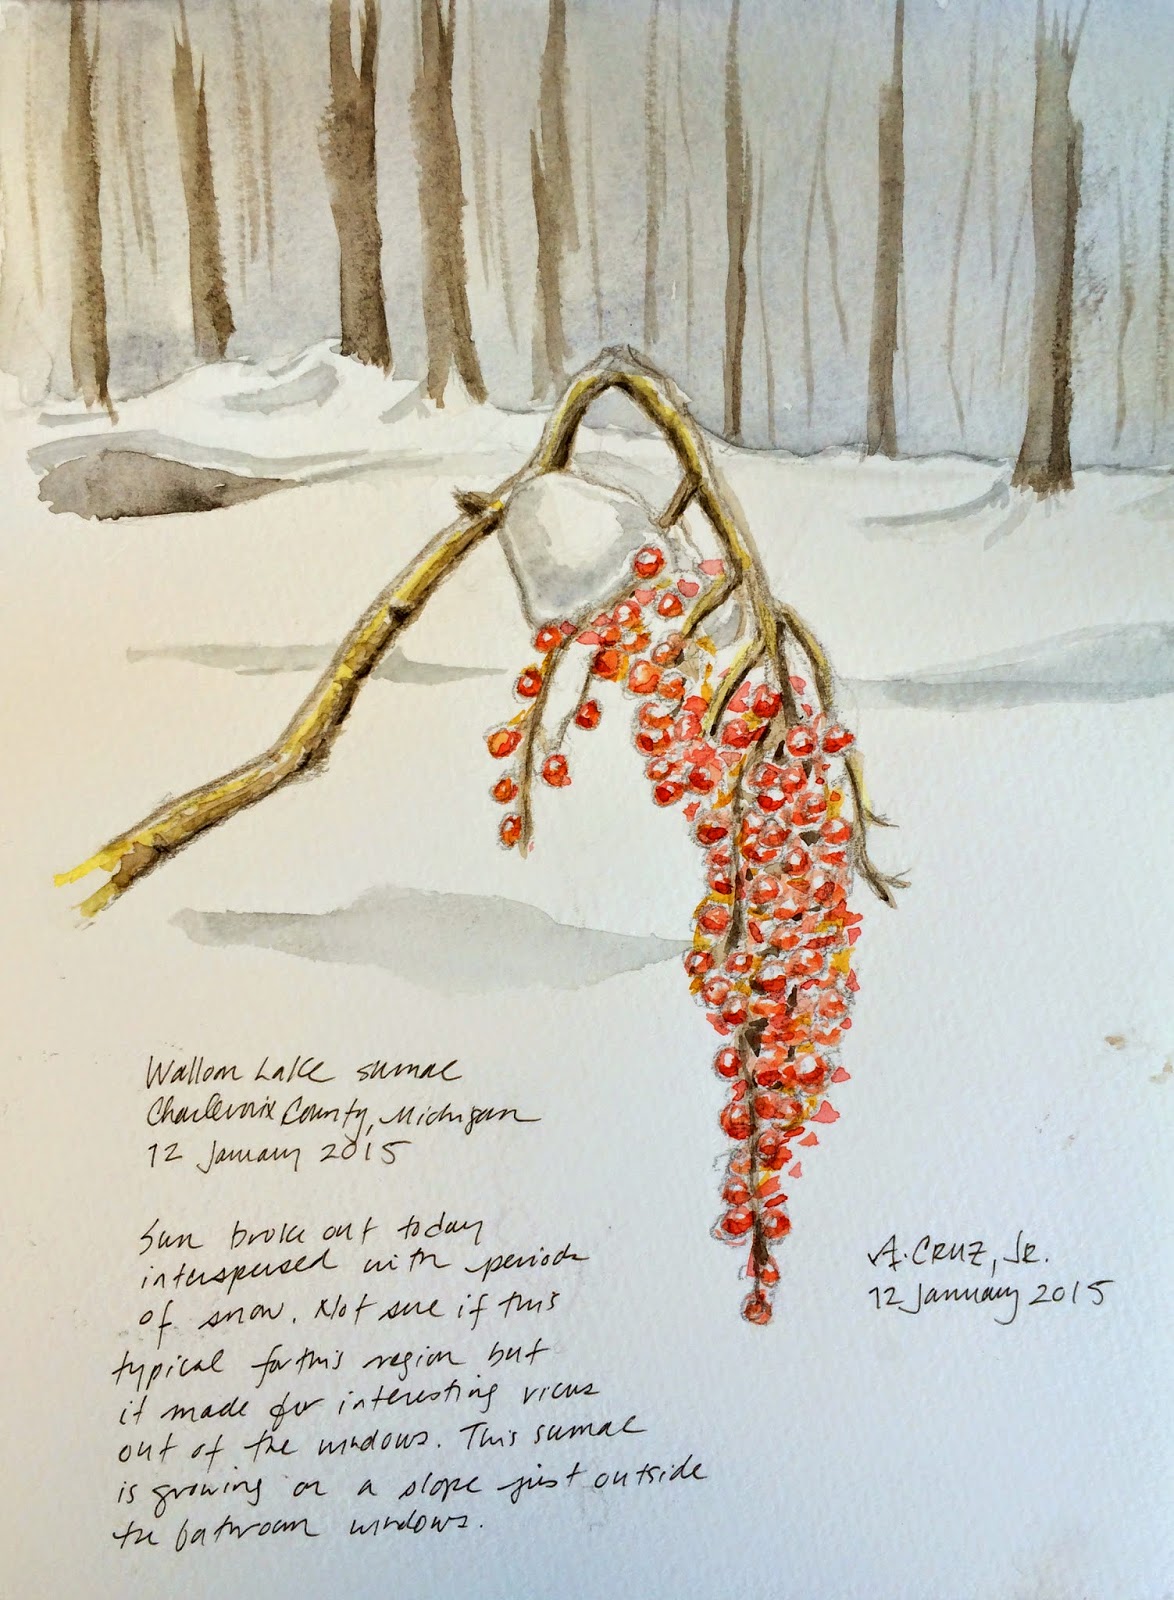 Walloon Lake sumac
Charlevoix County, Michigan
12 January 2015
Sun broke out today
interspersed with periods
of snow. Not sure if this
typical for this region but
it made for interesting views
out of the windows. This sumac
is growing on a slope just outside
the bathroom windows.
A. CRUZ, JR.
12 January 2015